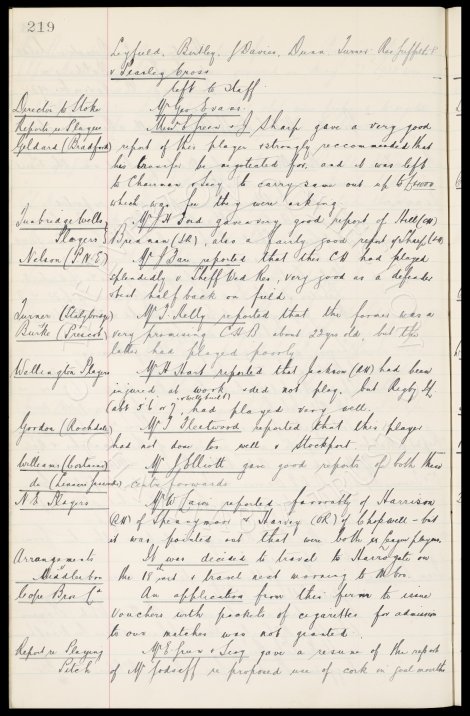 219
Leyfield, Butley, J Davies, Dunn Turner Res Griffiths
& Scarley Cross
left to Staff
Director to Stoke Mr Geo Evans
Report re Player Messrs E Green & J Sharp gave a very good
Geldard (Bradford) report of this player & strongly reccommended that
his transfer be negotiated for, and it was left
to Chairman & Secy to carry same out up to £4000
which was fee they were asking.
Tunbridge Wells Mr J H Ford gave very good report of Hill (CH)
Players Brennan (IR), also a fairly good report of Sharp
Nelson (P.N.E) Mr Jn Law reported that this CH had played
splendidly v Sheff Utd Res, very good as a defender
& best half back on field.
Turner (Stalybridge) Mr J. Kelly reported that the former was a
Burke (Prescot) very promising C.H.B about 22 yrs old, but the
latter had played poorly
Wellington Players Mr H Hart reported that Jackson (RH) had been
injured at work & did not play. but Rigby IL
(abt 5' 6 or 7" & well built) had played very well.
Gordon (Rochdale) Mr T. Fleetwood reported that this player
had not done too well v Stockport
Williams Mr J Elliott gave good reports of both these
do centre forwards
N.E. Players Mr W Laws reported favorably of Harrison
(RH) of Spennymoor & Harvey (OR) of Chopwell - but
it was pointed out that were both league players.
Arrangements It was decided to travel to Harrogate on
v Middlesbro the 18th inst & travel next morning to M'bro.
Cope Bros Co An application from this firm to issue
vouchers with packets of cigarettes for admission
to our matches was not granted.
Report re Playing Mr E Green & Secy gave a resume of the report
Pitch of Mr re proposed use of cork in goal mouths